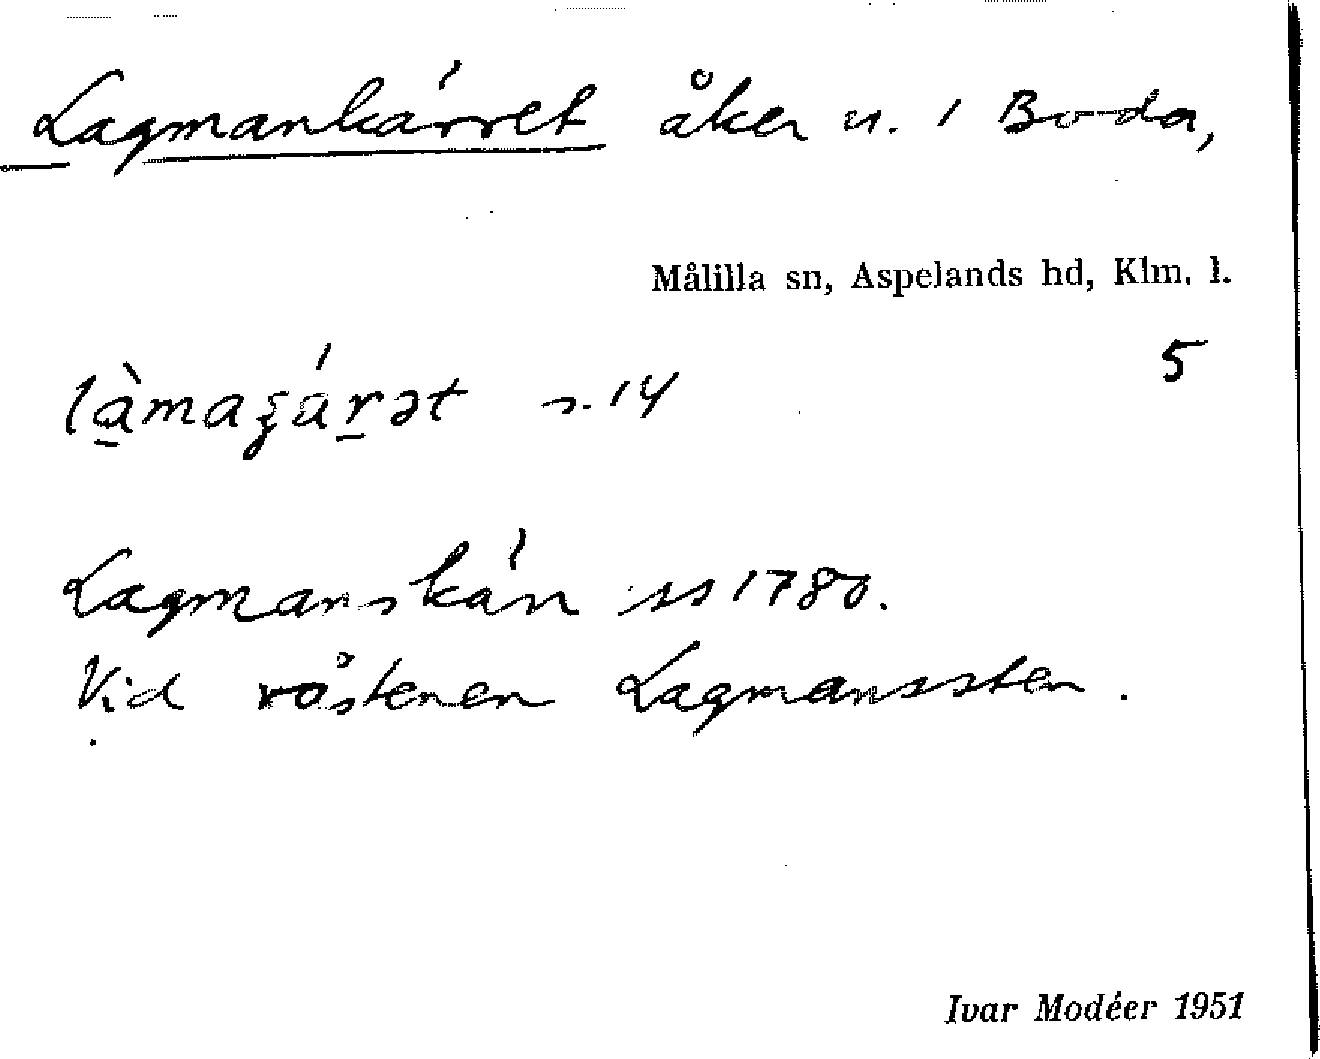 Lagmankärret åker n. 1 Boda,
Målilla sn, Aspelands hd, Klm. l.
5
là̱maʒáṟət s. 14
Lagmanskärr ss 1780.
Vid råstenen Lagmanssten.
Ivar Modéer 1951